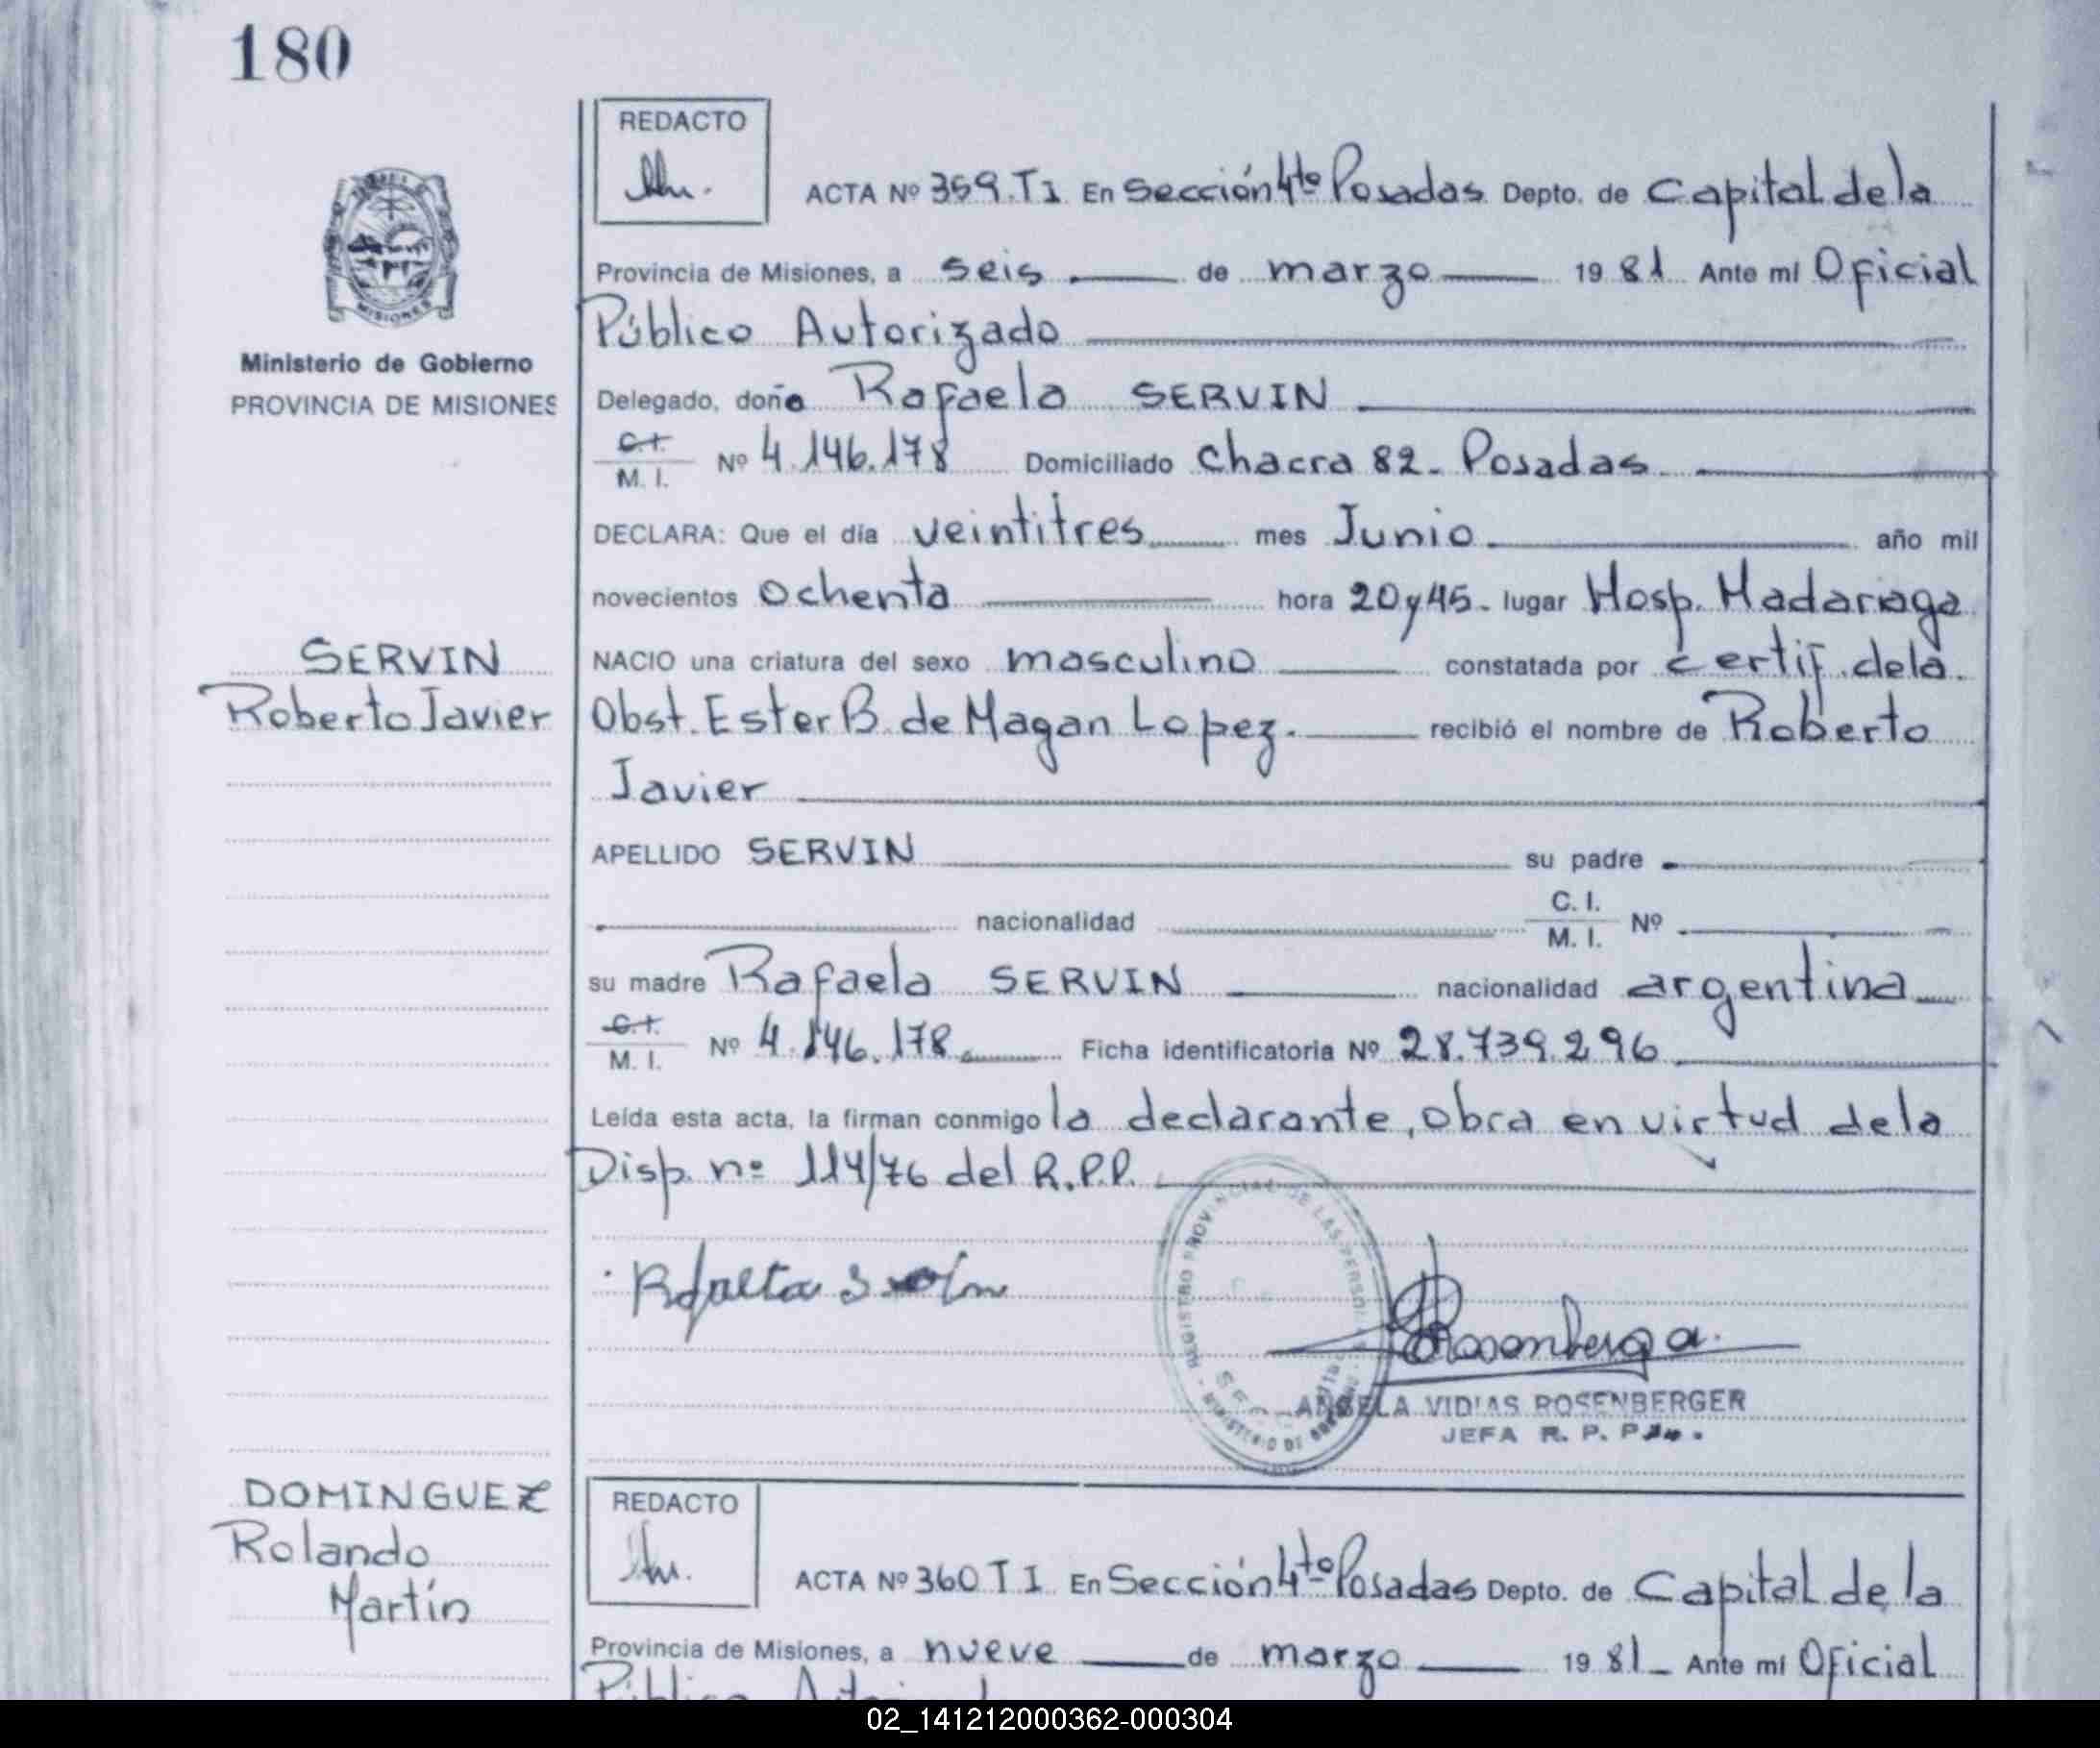 180
REDACTO
ACTA Nº 359.TI. En Sección 4to Posadas Depto. de Capital de la
Provincia de Misiones, a seis de marzo 1981 Ante mí Oficial
Público Autorizado
Ministerio de Gobierno
PROVINCIA DE MISIONES
Delegado, doña Rafaela SERVIN
C.I.
M. I. Nº 4.146.178 Domiciliado Chacra 82- Posadas.
DECLARA: Que el día veintitres mes Junio año mil
novecientos ochenta hora 20y45- lugar Hosp. Madariaga
SERVIN
Roberto Javier
NACIO una criatura del sexo masculino constatada por certif. de la
Obst. Ester B. de Magan Lopez. recibió el nombre de Roberto
Javier
APELLIDO SERVIN su padre
nacionalidad C. I.
M. I. Nº
su madre Rafaela SERVIN nacionalidad argentina
C.I.
M. I. Nº 4.146.178. Ficha identificatoria Nº 28.739.296
Leída esta acta, la firman conmigo la declarante, obra en virtud de la
Disp. nº 114/76 del R.P.P.
REGISTRO PROVINCIAL DE LAS PERSONAS
MINISTERIO DE
ANGELA VIDIAS ROSENBERGER
JEFA R. P. P.
DOMINGUEZ
Rolando
Martín
REDACTO
ACTA Nº 360 TI En Sección 4to Posadas Depto. de Capital de la
Provincia de Misiones, a nueve de marzo 1981- Ante mí Oficial
Público
02_141212000362-000304